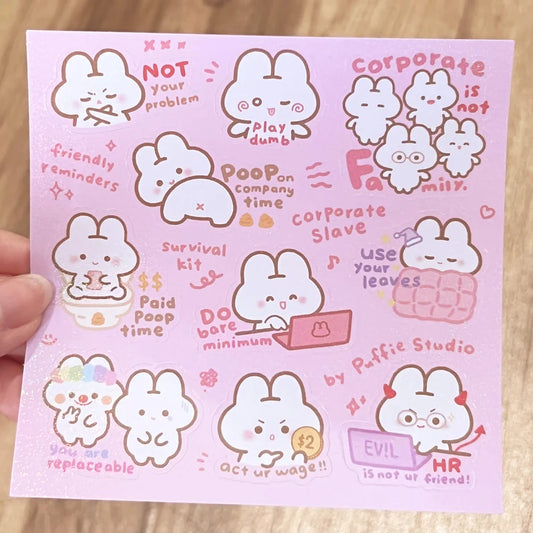 NOT
your
problem
play
dumb
corporate
is
not
Family.
friendly
reminders
POOP on
company
time
corporate
slave
survival
kit
use
your
leaves
$$
Paid
Poop
time
DO
bare
minimum
by Puffie Studio
you are
replaceable
$2
act ur wage!!
EV!L
HR
is not ur friend!